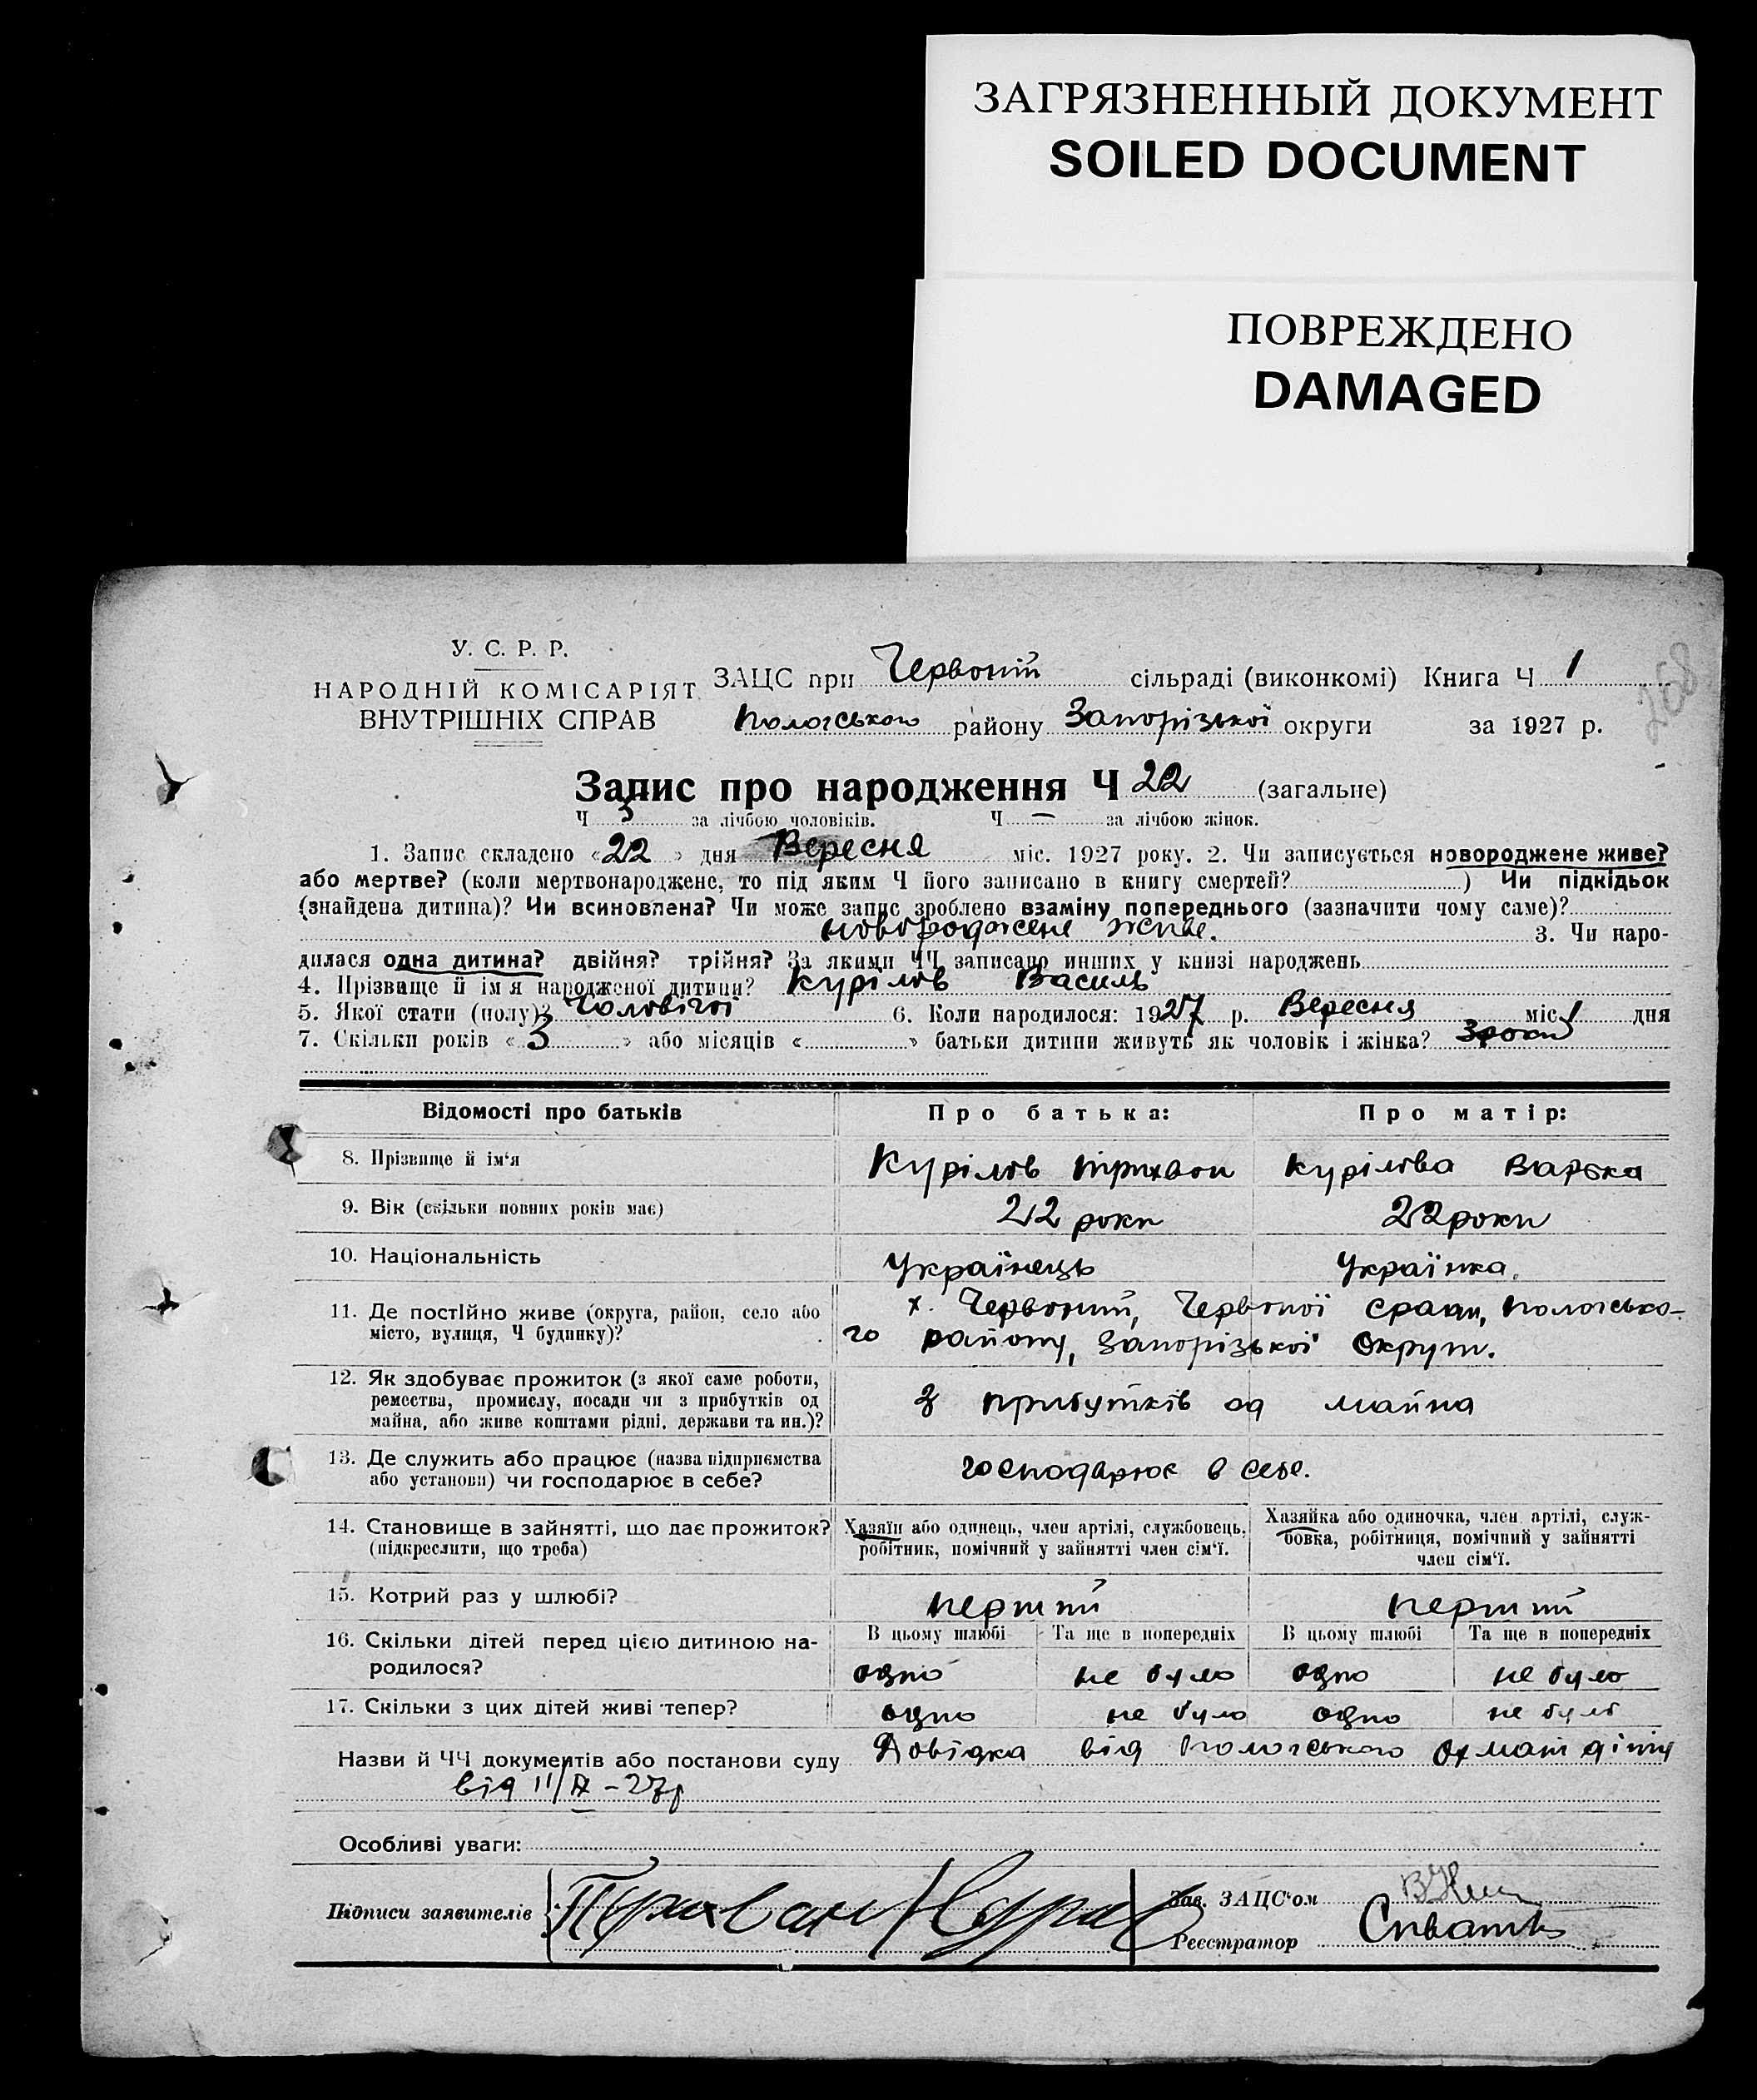 ЗАГРЯЗНЕННЫЙ ДОКУМЕНТ
SOILED DOCUMENT
ПОВРЕЖДЕНО
DAMAGED
268
У. С. Р. Р.
НАРОДНІЙ КОМІСАРІЯТ
ВНУТРІШНІХ СПРАВ
ЗАЦС при Червоній сільраді (виконкомі) Книга Ч 1
Пологського району Запорізької округи за 1927 р.
Запис про народження Ч 22 (загальне)
Ч 3 за лічбою чоловіків. Ч — за лічбою жінок.
1. Запис складено «22» дня Вересня міс. 1927 року. 2. Чи записується новороджене живе?
або мертве? (коли мертвонароджене, то під яким Ч його записано в книгу смертей? ) Чи підкідьок
(знайдена дитина)? Чи всиновлена? Чи може запис зроблено взаміну попереднього (зазначити чому саме)?
новороджене живе. 3. Чи наро-
дилася одна дитина? двійня? трійня? За якими ЧЧ записано инших у книзі народжень
4. Прізвище й ім'я народженої дитини? Курілов Василь
5. Якої стати (полу)? Чоловічої 6. Коли народилося: 1927 р. Вересня міс 1 дня
7. Скільки років «3» або місяців « » батьки дитини живуть як чоловік і жінка? 3 роки
Відомості про батьків Про батька: Про матір:
8. Прізвище й ім'я Курілов Трихвон Курілова Варька
9. Вік (скільки повних років має) 22 роки 22 роки
10. Національність Українець Українка.
11. Де постійно живе (округа, район, село або
місто, вулиця, Ч будинку)?
х. Червоний, Червоної сради, Пологсько-
го району, Запорізької Округи.
12. Як здобуває прожиток (з якої саме роботи,
ремества, промислу, посади чи з прибутків од
майна, або живе коштами рідні, держави та ин.)?
з прибутків од майна
13. Де служить або працює (назва підприємства
або установи) чи господарює в себе?
господарює в себе.
14. Становище в зайнятті, що дає прожиток?
(підкреслити, що треба)
Хазяїн або одинець, член артілі, службовець,
робітник, помічний у зайнятті член сім'ї.
Хазяйка або одиночка, член артілі, служ-
бовка, робітниця, помічний у зайнятті
член сім'ї.
15. Котрий раз у шлюбі? перший перший
16. Скільки дітей перед цією дитиною на-
родилося?
В цьому шлюбі Та ще в попередніх В цьому шлюбі Та ще в попередніх
одно не було одно не було
17. Скільки з цих дітей живі тепер? одно не було одно не було
Назви й ЧЧ документів або постанови суду Довідка від Пологського
від 11/IX – 27р
Особливі уваги:
Підписи заявителів Трихван Курил
Зав. ЗАЦС'ом
Реєстратор